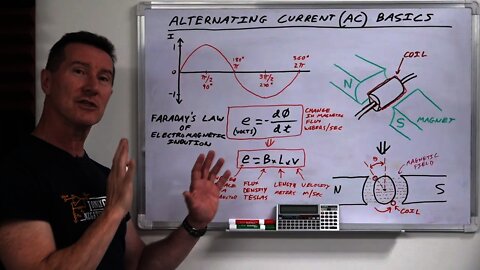 ALTERNATING CURRENT (AC) BASICS
I
1
-1
180°
π
360°
2π
π/2
90°
3π/2
270°
COIL
N
S
MAGNET
FARADAY'S LAW
OF
ELECTROMAGNETIC
INDUTION
e = - dØ
(VOLTS) dt
CHANGE
IN MAGNETIC
FLUX
WEBERS/SEC
e = B x L x V
FLUX
DENSITY
TESLAS
LENGTH
METERS
VELOCITY
M/SEC
MAGNETIC
FIELD
N
S
COIL